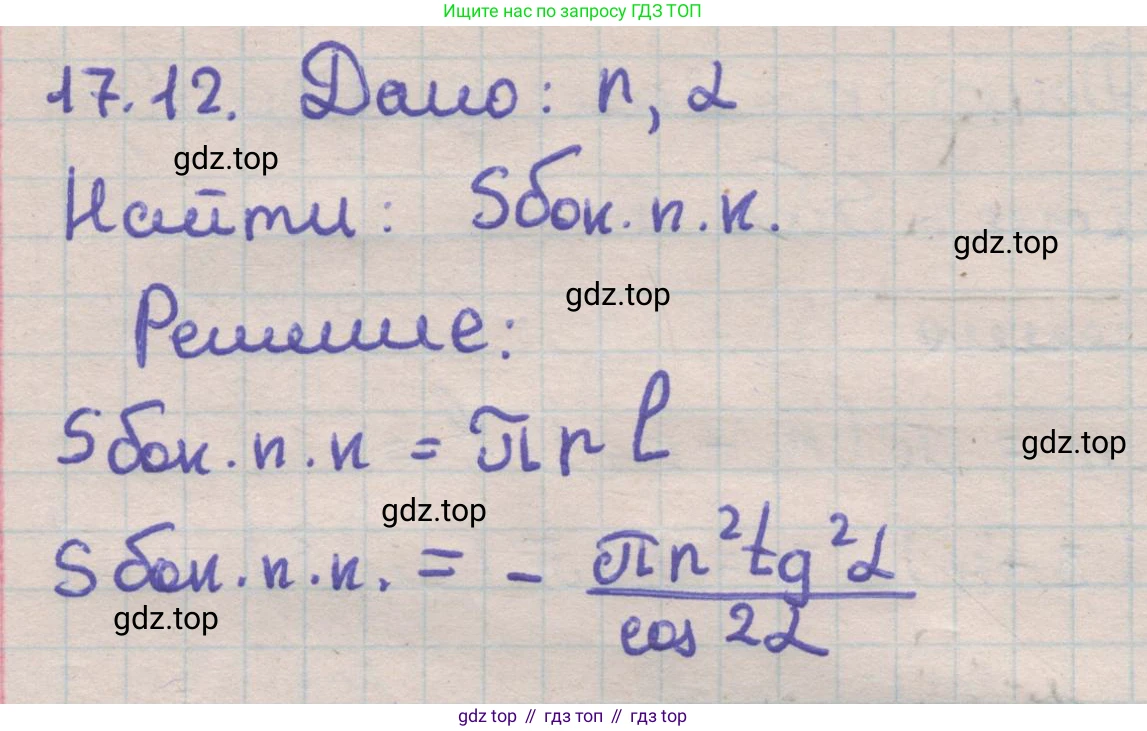 Ищите нас по запросу ГДЗ ТОП
17.12. Дано: r, α
gdz.top
Найти: Sбок.п.к.
gdz.top
gdz.top
Решение:
Sбок.п.к = πrl
gdz.top
gdz.top
Sбок.п.к. = - πr²tg²α / cos 2α
gdz.top
gdz top // гдз топ // gdz top